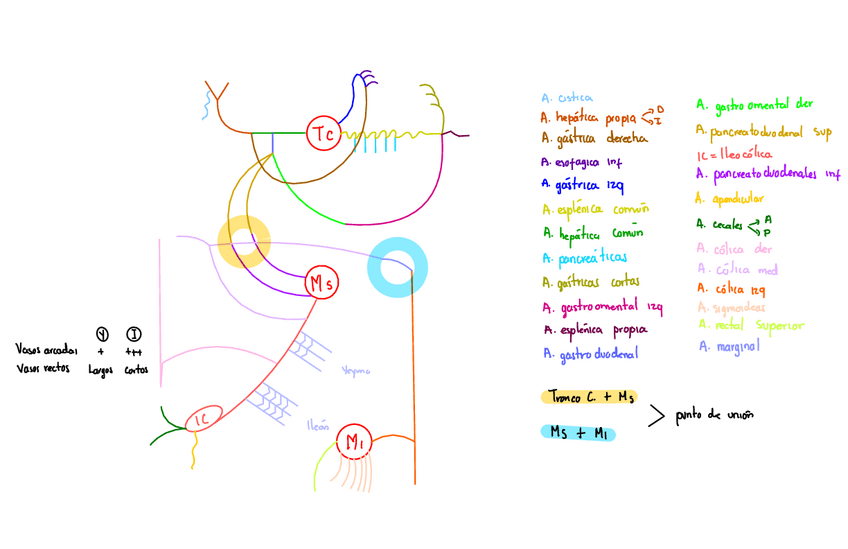 Tc
Ms
Y I
Vasos arcadas + +++
Vasos rectos Largos Cortos
Yeyuno
Ileón
IC
Mi
A. cistica
A. hepática propia D
I
A. gástrica derecha
A. esofagica inf
A. gástrica izq
A. esplénica común
A. hepática común
A. pancreáticas
A. gástricas cortas
A. gastroomental izq
A. esplénica propia
A. gastroduodenal
A. gastroomental der
A. pancreatoduodenal sup
IC = Ileocólica
A. pancreatoduodenales inf
A. apendicular
A. cecales A
P
A. cólica der
A. cólica med
A. cólica izq
A. sigmoideas
A. rectal superior
A. marginal
Tronco C. + Ms
Ms + Mi
punto de unión